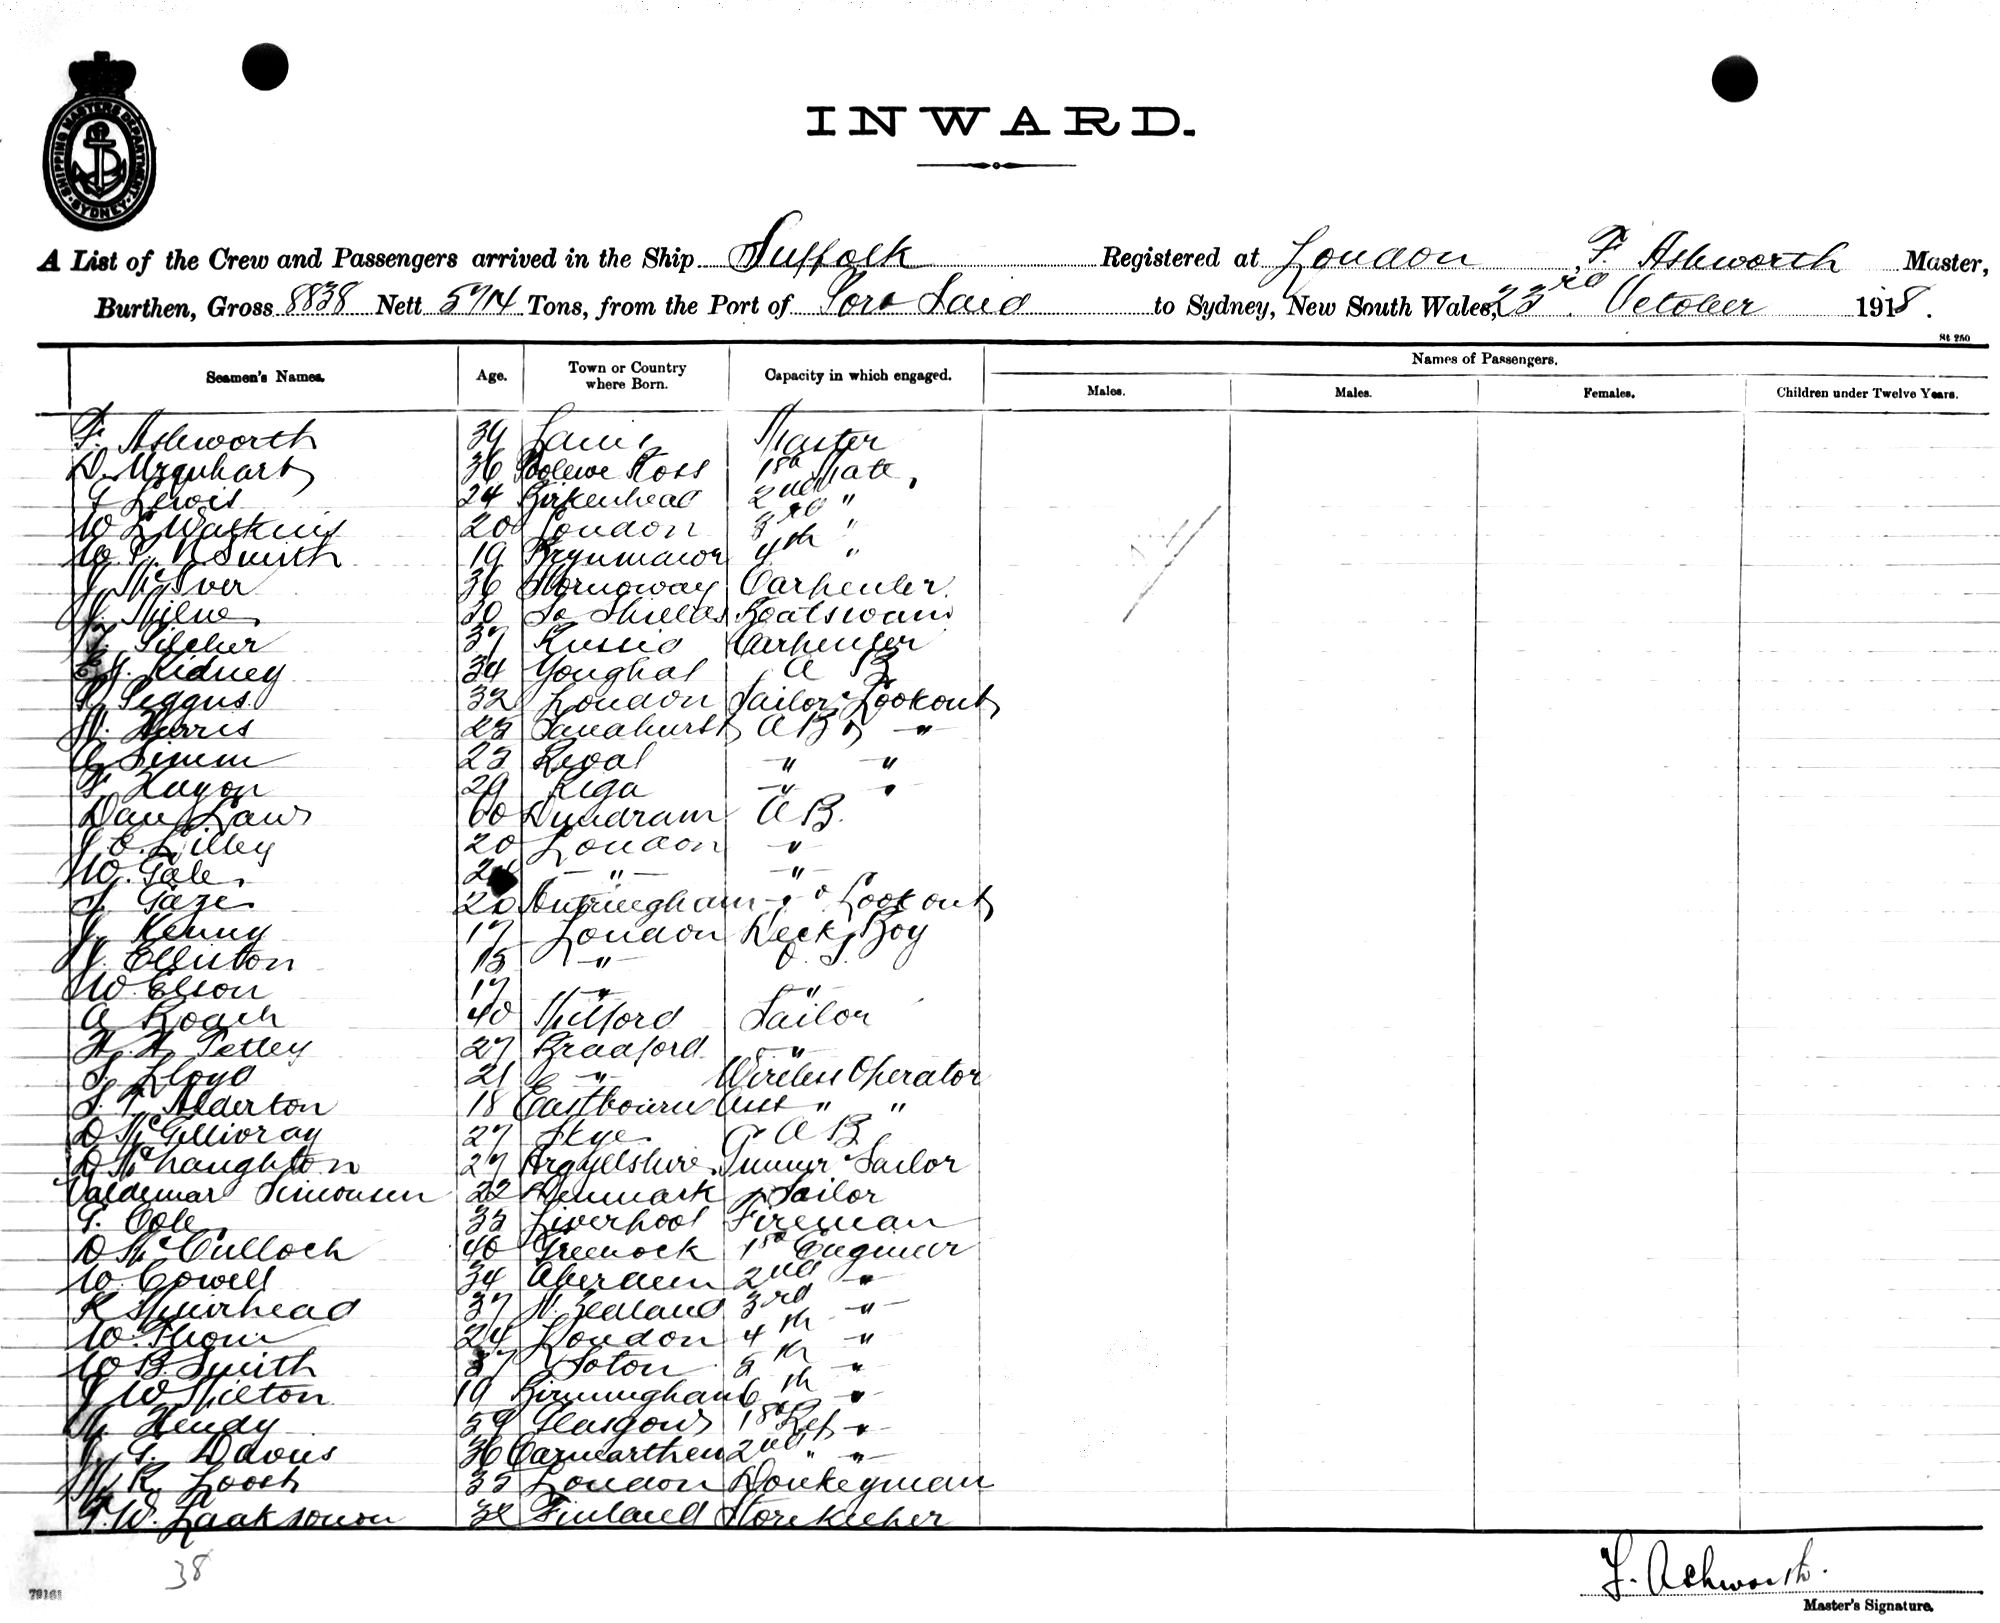 SHIPPING MASTERS DEPARTMENT SYDNEY
INWARD.
A List of the Crew and Passengers arrived in the Ship Suffolk Registered at London, F. Ashworth Master,
Burthen, Gross 8838 Nett 5714 Tons, from the Port of Port Said to Sydney, New South Wales, 23rd October 1918.
St 250
Names of Passengers.
Seamen's Names. Age. Town or Country where Born. Capacity in which engaged. Males. Males. Females. Children under Twelve Years.
F. Ashworth 39 Master
D. Urquhart 36 Poolewe Ross 1st Mate
F Lewis 24 Birkenhead 2nd "
W L Watkins 20 London 3rd "
Smith 19 Brynmawr 4th "
J McIver 36 Stornoway Carpenter
J. Milne 30 So Shields Boatswain
Pilcher 37 Russia Carpenter
E J. Kidney 34 Youghal A B
Peggus 32 London Sailor & Lookout
Harris 25 A B & "
Simm 23 Reval " "
29 Riga " "
Dan Laws 60 Dundrum A B.
J E. Lilley 20 London "
W. Gale " "
Gaze 20 Lookout
J. Kenny 17 London Deck Boy
J. Elliston 15 " O. S.
W. Elson 17 " "
A Roach 40 Milford Sailor
H. H. Petley 27 Bradford "
S. Lloyd 21 " Wireless Operator
S. F. Alderton 18 Eastbourne Asst " "
D McGillivray 27 Skye A B
D McNaughton 27 Argyllshire Gunner Sailor
Valdemar Simonsen 22 Denmark Sailor
G. Cole 35 Liverpool Fireman
D McCulloch 40 Greenock 1st Engineer
W. Cowell 34 Aberdeen 2nd "
R Muirhead 37 N. Zealand 3rd "
W. Thom 24 London 4th "
W B. Smith 37 Soton 5th "
J W Milton 19 Birmingham 6th "
Hendy 59 Glasgow 1st Ref "
J. G. Davies 36 Carmarthen 2nd " "
R. Loosh 35 London Donkeyman
F. W. Laaksonen 38 Finland Storekeeper
38
F. Ashworth.
Master's Signature.
79161